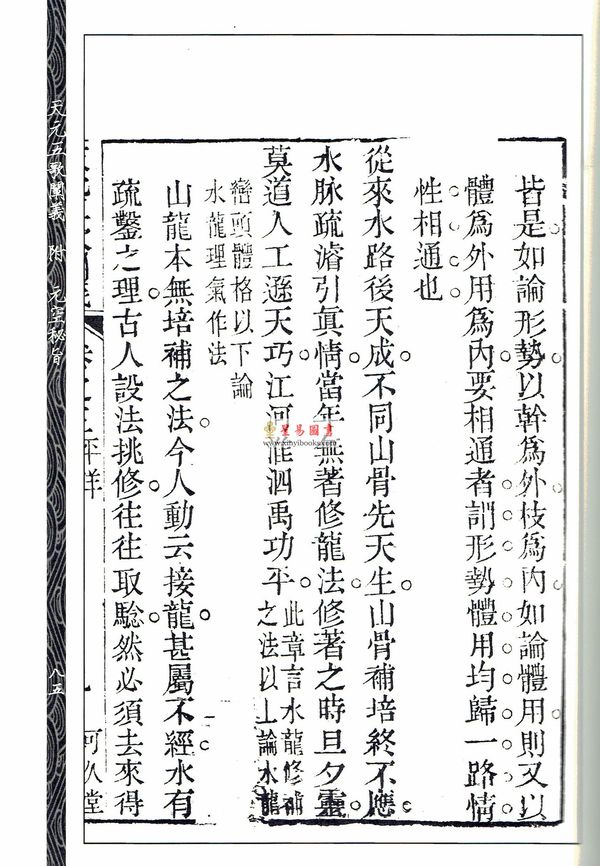 皆是如論形勢以幹爲外枝爲內如論體用則又以
體爲外用爲內要相通者謂形勢體用均歸一路情
性相通也
從來水路後天成不同山骨先天生山骨補培終不應
水脉疏濬引眞情當年無著修龍法修著之時旦夕靈
莫道人工遜天巧江河淮泗禹功平
此章言水龍修補
之法以上論水龍
巒頭體格以下論
水龍理氣作法
山龍本無培補之法今人動云接龍甚屬不經水有
疏鑿之理古人設法挑修往往取騐然必須去來得
卷之三平洋
可久堂
天元五歌闡義 附 元空秘旨
八五
星易圖書
www.xinyibooks.com